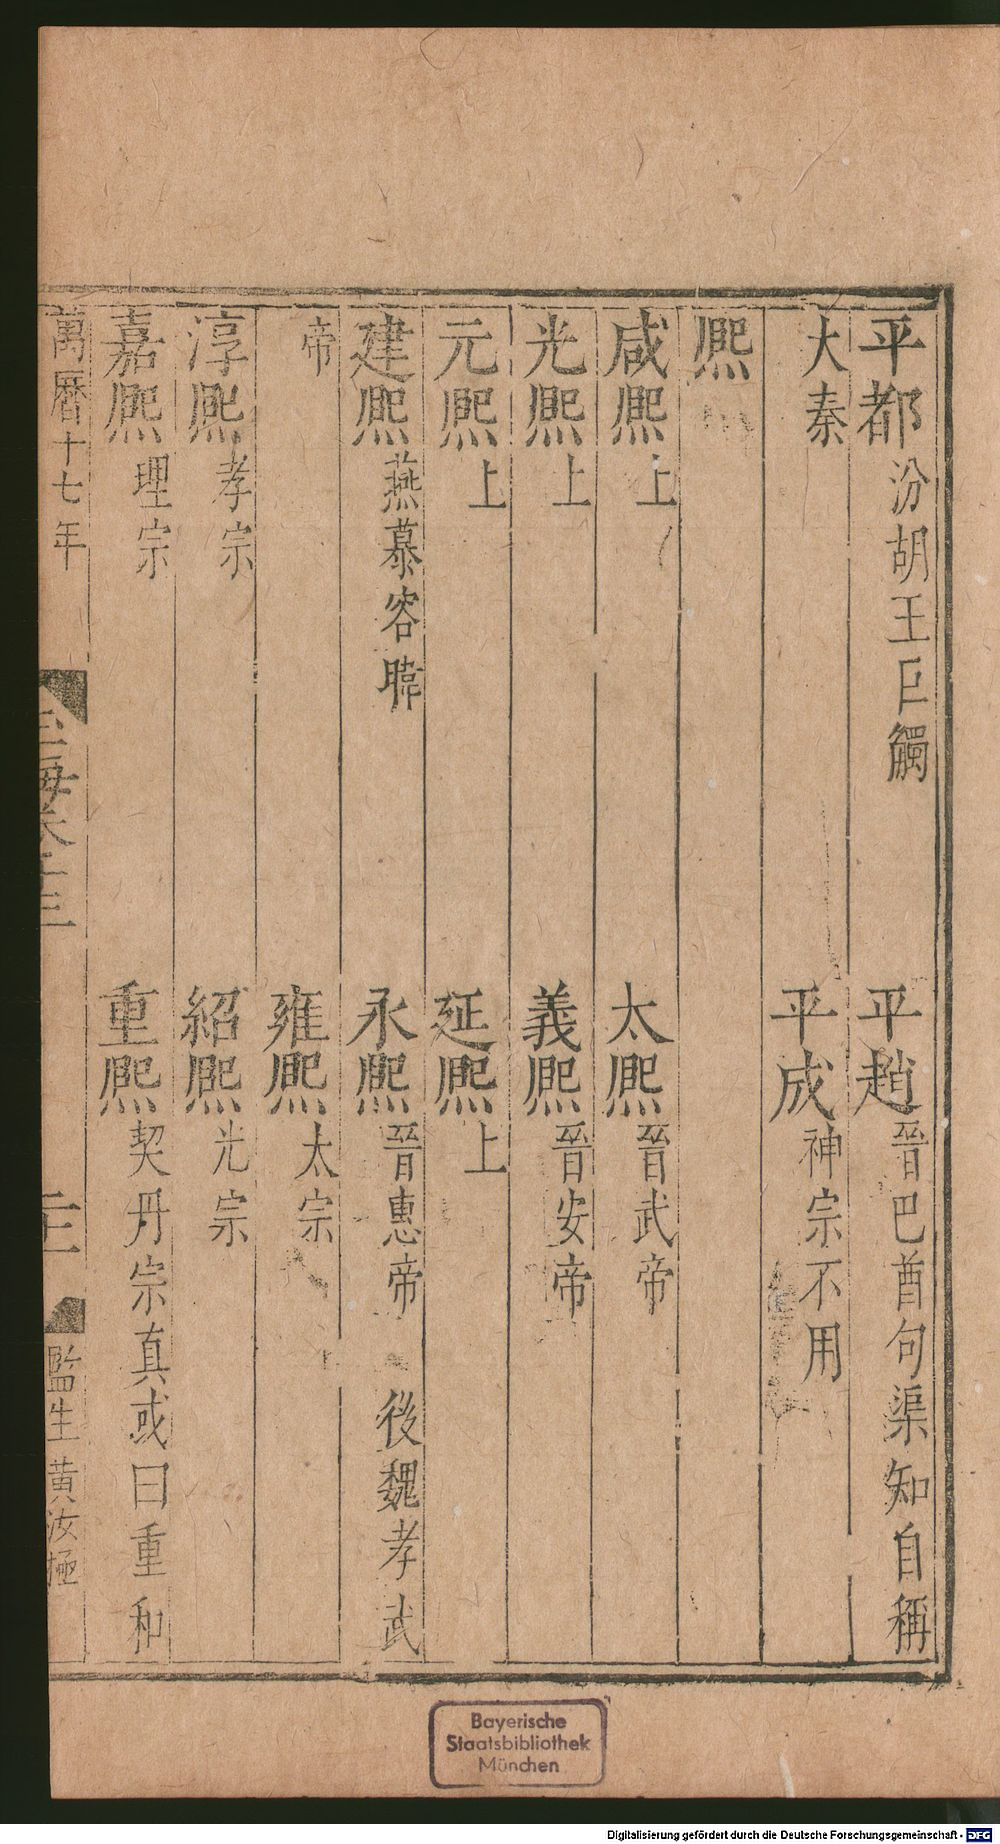 平都汾胡王巨觸 平趙晉巴酋句渠知自稱
大秦 平成神宗不用
熙
咸熙上 太熙晉武帝
光熙上 義熙晉安帝
元熙上 延熙上
建熙燕慕容暐 永熙晉惠帝 後魏孝武
帝 雍熙太宗
淳熙孝宗 紹熙光宗
嘉熙理宗 重熙契丹宗真或曰重和
萬曆十七年 玉海卷十三 二十一 監生黃汝極
Bayerische
Staatsbibliothek
München
Digitalisierung gefördert durch die Deutsche Forschungsgemeinschaft - DFG